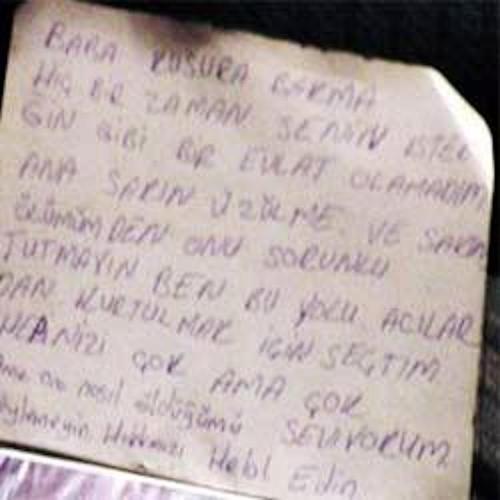 BABA KUSURA BAKMA
HİÇ BİR ZAMAN SENİN İSTEDİ
GİN GİBİ BİR EVLAT OLAMADIM
ANA SAKIN ÜZÜLME VE SAKIN
ÖLÜMÜMDEN ONU SORUNLU
TUTMAYIN BEN BU YOLU ACILAR
DAN KURTULMAK İÇİN SEÇTİM
ÇOK AMA ÇOK
SEVİYORUM
nasıl öldüğümü
Söylemeyin Hakkınızı Helal Edin